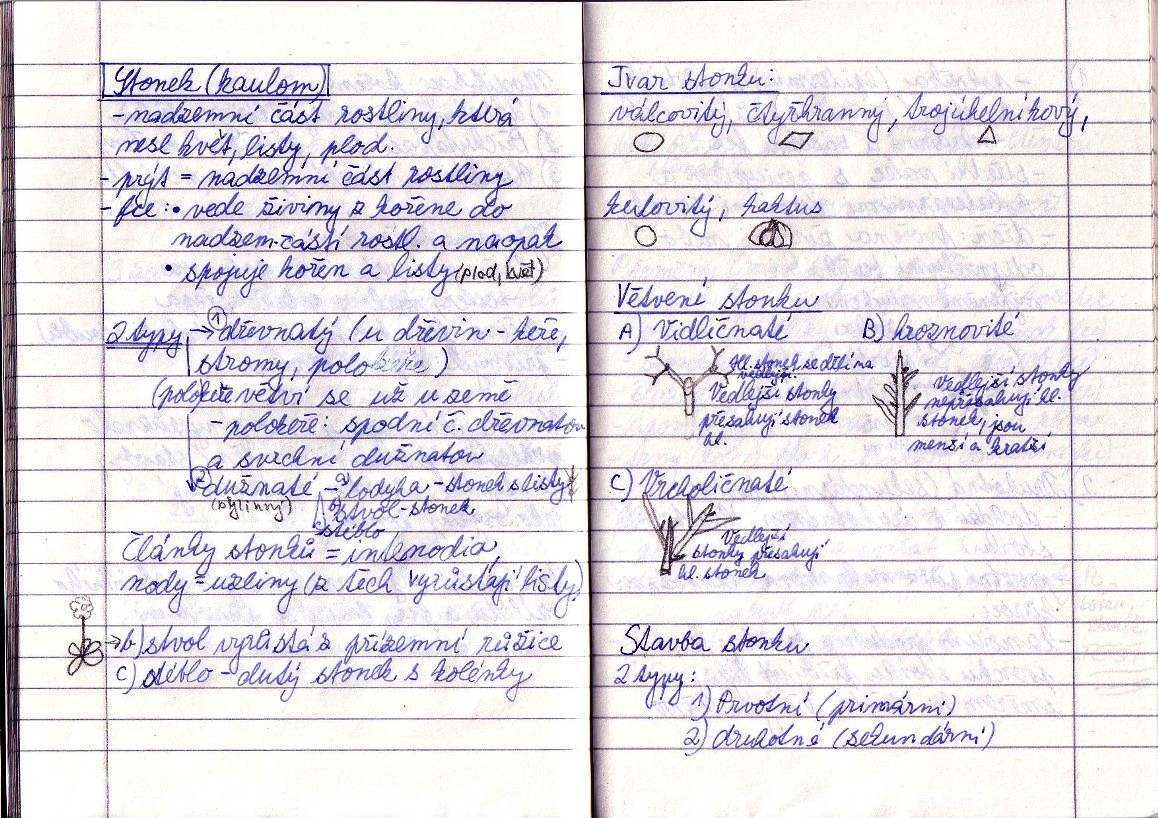 Stonek (kaulom)
- nadzemní část rostliny, která
nese květ, listy, plod.
- prýt = nadzemní část rostliny
- fce: • vede živiny z kořene do
nadzem. částí rostl. a naopak
• spojuje kořen a listy (plod, květ)
2 typy → 1 dřevnatý (u dřevin - keře,
stromy, polokeře)
(polokeře větví se už u země
- polokeře: spodní č. dřevnatou
a svrchní dužnatou
2 dužnaté - a) lodyha - stonek s listy
(byliny) b) stvol - stonek
c) stéblo
Články stonků = internodia,
nody = uzliny (z těch vyrůstají listy)
→ b) stvol vyrůstá z přízemní růžice
c) stéblo - dutý stonek s kolénky
Tvar stonku:
válcovitý, čtyřhranný, trojúhelníkový,
kelovitý, kaktus
Větvení stonku
A) Vidličnaté B) hroznovité
Hl. stonek se dělí na
vedlejší.
Vedlejší stonky
přesahují stonek
hl.
Vedlejší stonky
nepřesahují hl.
stonek, jsou
menší a kratší
C) Vrcholičnaté
Vedlejší
stonky přesahují
hl. stonek
Stavba stonku
2 typy:
1) Prvotní (primární)
2) druhotné (sekundární)